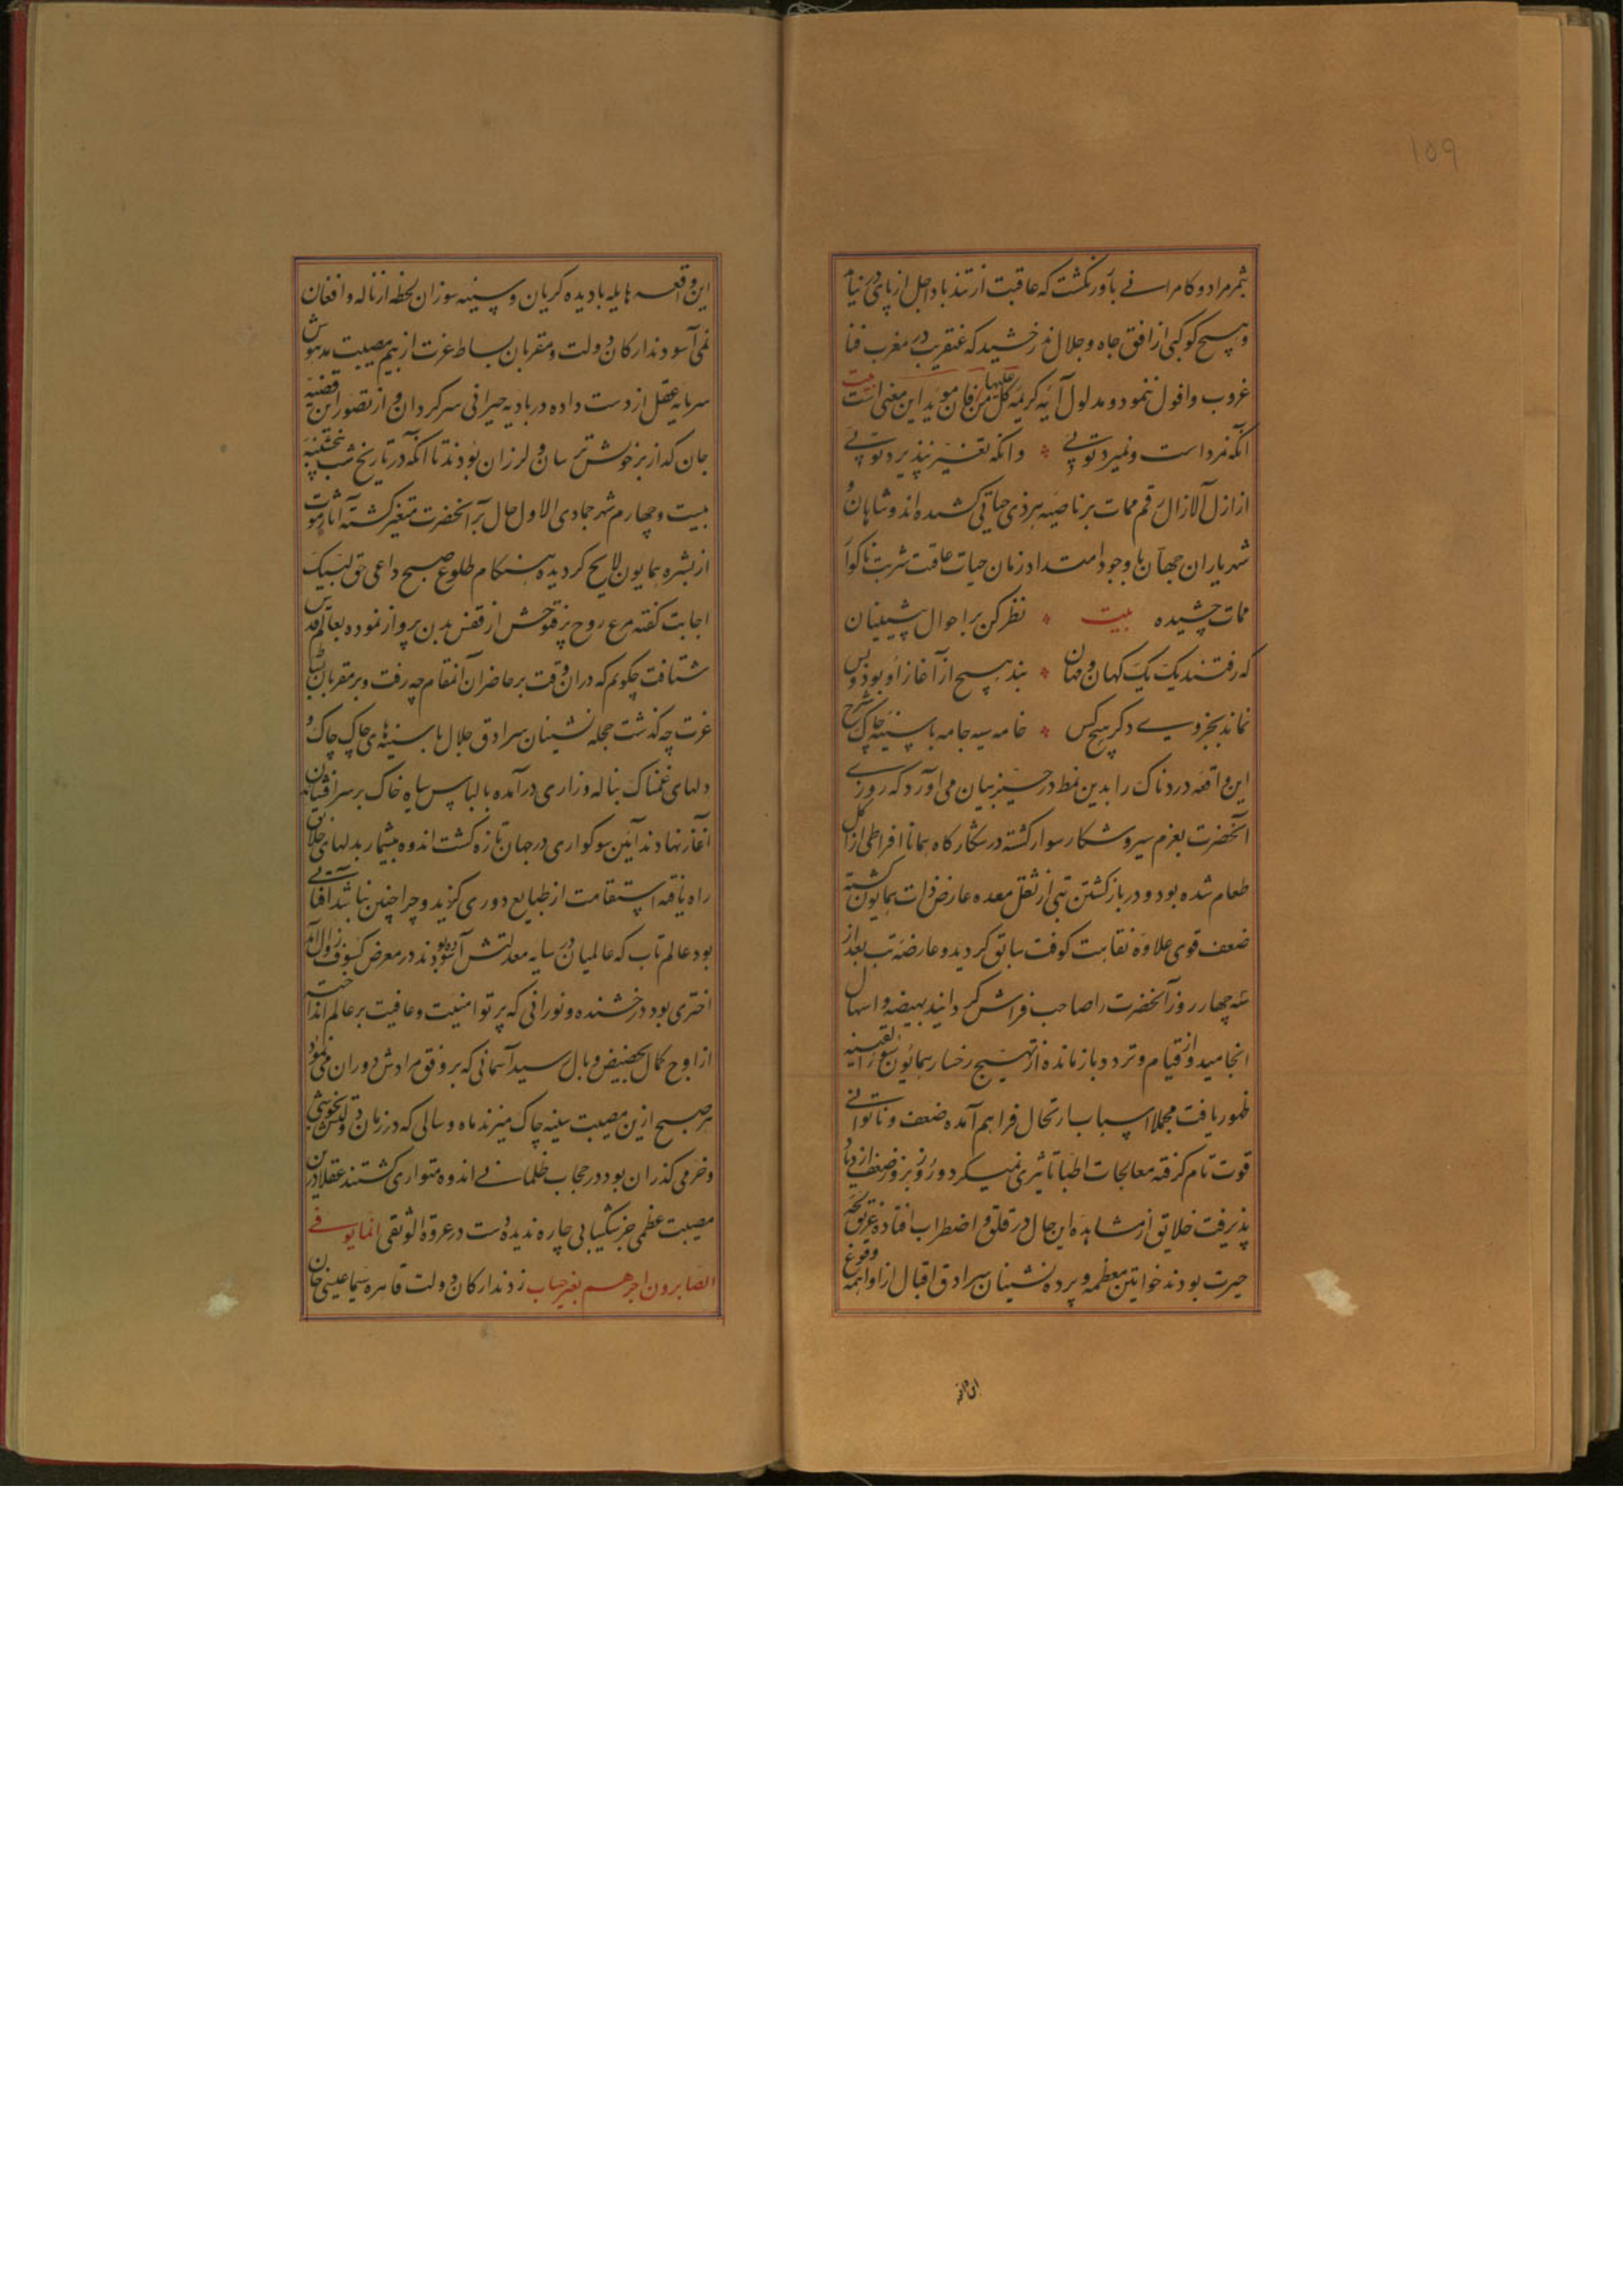 ۱۵۹
بثمر مراد و کامرانی بارور نگشت که عاقبت از تندباد اجل از پای در نیامد
و هیچ کوکبی از افق جاه و جلال ندرخشید که عنقریب در مغرب فنا
غروب و افول ننمود و مدلول آیه کریمه کل من علیها فان موید این معنی است بیت
آنکه نمرداست و نمیرد توئی وانکه تغیر نپذیرد توئی
از ازل آلازال رقم ممات بر ناصیه هر ذی حیاتی کشیده اند و شاهان و
شهریاران جهان با وجود امتداد زمان حیات عاقبت شربت ناکوار
ممات چشیده بیت نظر کن بر احوال پیشینیان
که رفتند یک یک کهان و مهان بند هیچ از آغاز او بود و بس
نماند بجز وی دکر هیچ کس خامه سیه جامه با سینه چاک شرح
این واقعه دردناک را بدین نمط در حیز بیان می آورد که روزی
آنحضرت بعزم سیر و شکار سوار کشته در شکارکاه همانا افراطی از اکل
طعام شده بود و در بازکشتن تبی از ثقل معده عارض ذات همایون کشته
ضعف قوی علاوه نقاهت کوفت سابق کردید و عارضه تب بعد از
سه چهار روز آنحضرت را صاحب فراش کردانید بهیضه و اسهال
انجامید و از قیام و تردد بازمانده از تهیج رخسار همایون سوء القنیه
ظهور یافت مجملا اسباب ارتحال فراهم آمده ضعف و ناتوانی
قوت تام کرفته معالجات اطبا تاثیری نمیکرد و روز بروز ضعف ازدیاد
پذیرفت خلایق از مشاهده این حال در قلق و اضطراب افتاده غریق لجه
حیرت بودند خواتین معظمه و پرده نشینان سرادق اقبال از واهمه وقوع
این واقعه
این واقعه هایله با دیده کریان و سینه سوزان لحظه از ناله و افغان
نمی آسودند ارکان دولت و مقربان بساط عزت از بیم مصیبت مدهوش
سرمایه عقل از دست داده در بادیه حیرانی سرکردان و از تصور این قضیه
جان کداز بر خویش ترسان و لرزان بودند تا آنکه در تاریخ شب پنجشنبه
بیست و چهارم شهر جمادی الاول حال بر آنحضرت متغیر کشته آثار موت
از بشره همایون لایح کردیده هنکام طلوع صبح داعی حق لبیک
اجابت کفته مرغ روح پرفتوحش از قفس بدن پرواز نموده بعالم قدس
شتافت چکویم که در ان وقت بر حاضران آنمقام چه رفت و بر مقربان بساط
عزت چه کذشت حجله نشینان سرادق جلال با سینه های چاک چاک و
دلهای غمناک بناله و زاری درآمده با لباس سیاه خاک بر سر افشاندن
آغاز نهادند آیین سوکواری در جهان تازه کشت اندوه بیشمار بدلهای خلایق
راه یافته استقامت از طبایع دوری کزید و چرا چنین نباشد آفتابی
بود عالم تاب که عالمیان در سایه معدلتش آسوده بودند در معرض کسوف زوال آمد
اختری بود درخشنده و نورانی که پرتو امنیت و عافیت بر عالم انداخته
از اوج کمال بحضیض وبال رسید آسمانی که بر وفق مرادش دوران می نمود
هر صبح ازین مصیبت سینه چاک میزند ماه و سالی که در زمان دولتش بخوشی
و خرمی کذران بود در حجاب ظلمانی اندوه متواری کشتند عقلا درین
مصیبت عظمی جز شکیبایی چاره ندیده دست در عروة الوثقی انما یوفی
الصابرون اجرهم بغیر حساب زدند ارکان دولت قاهره سیما عیسی خان